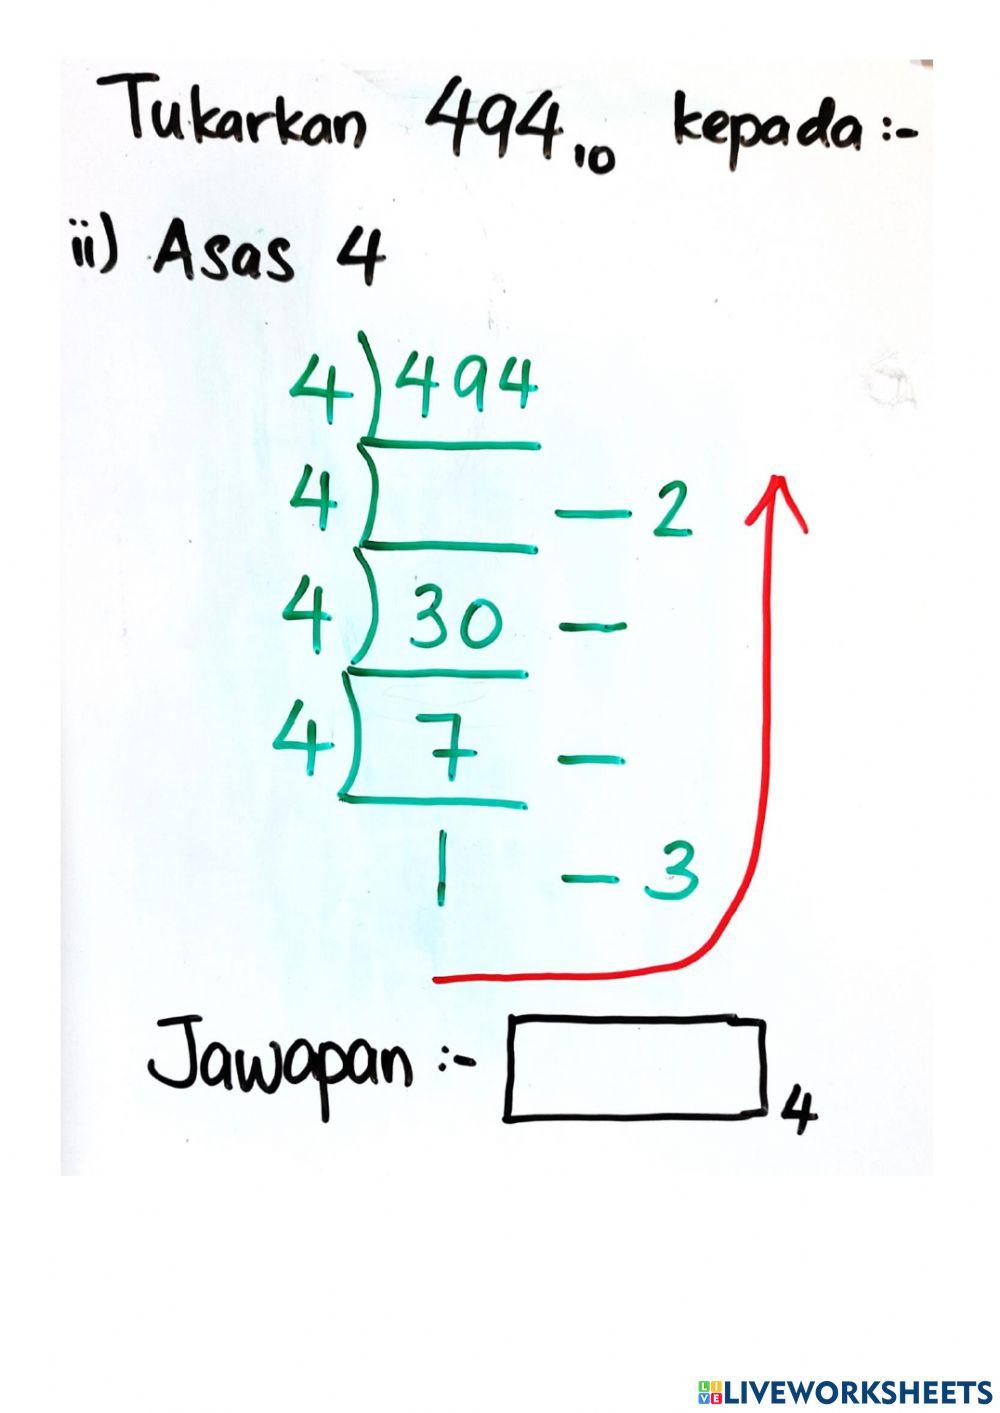 Tukarkan 494₁₀ kepada :-
ii) Asas 4
4) 494
4) — 2
4) 30 —
4) 7 —
1 — 3
Jawapan :- 4
LIVE LIVEWORKSHEETS